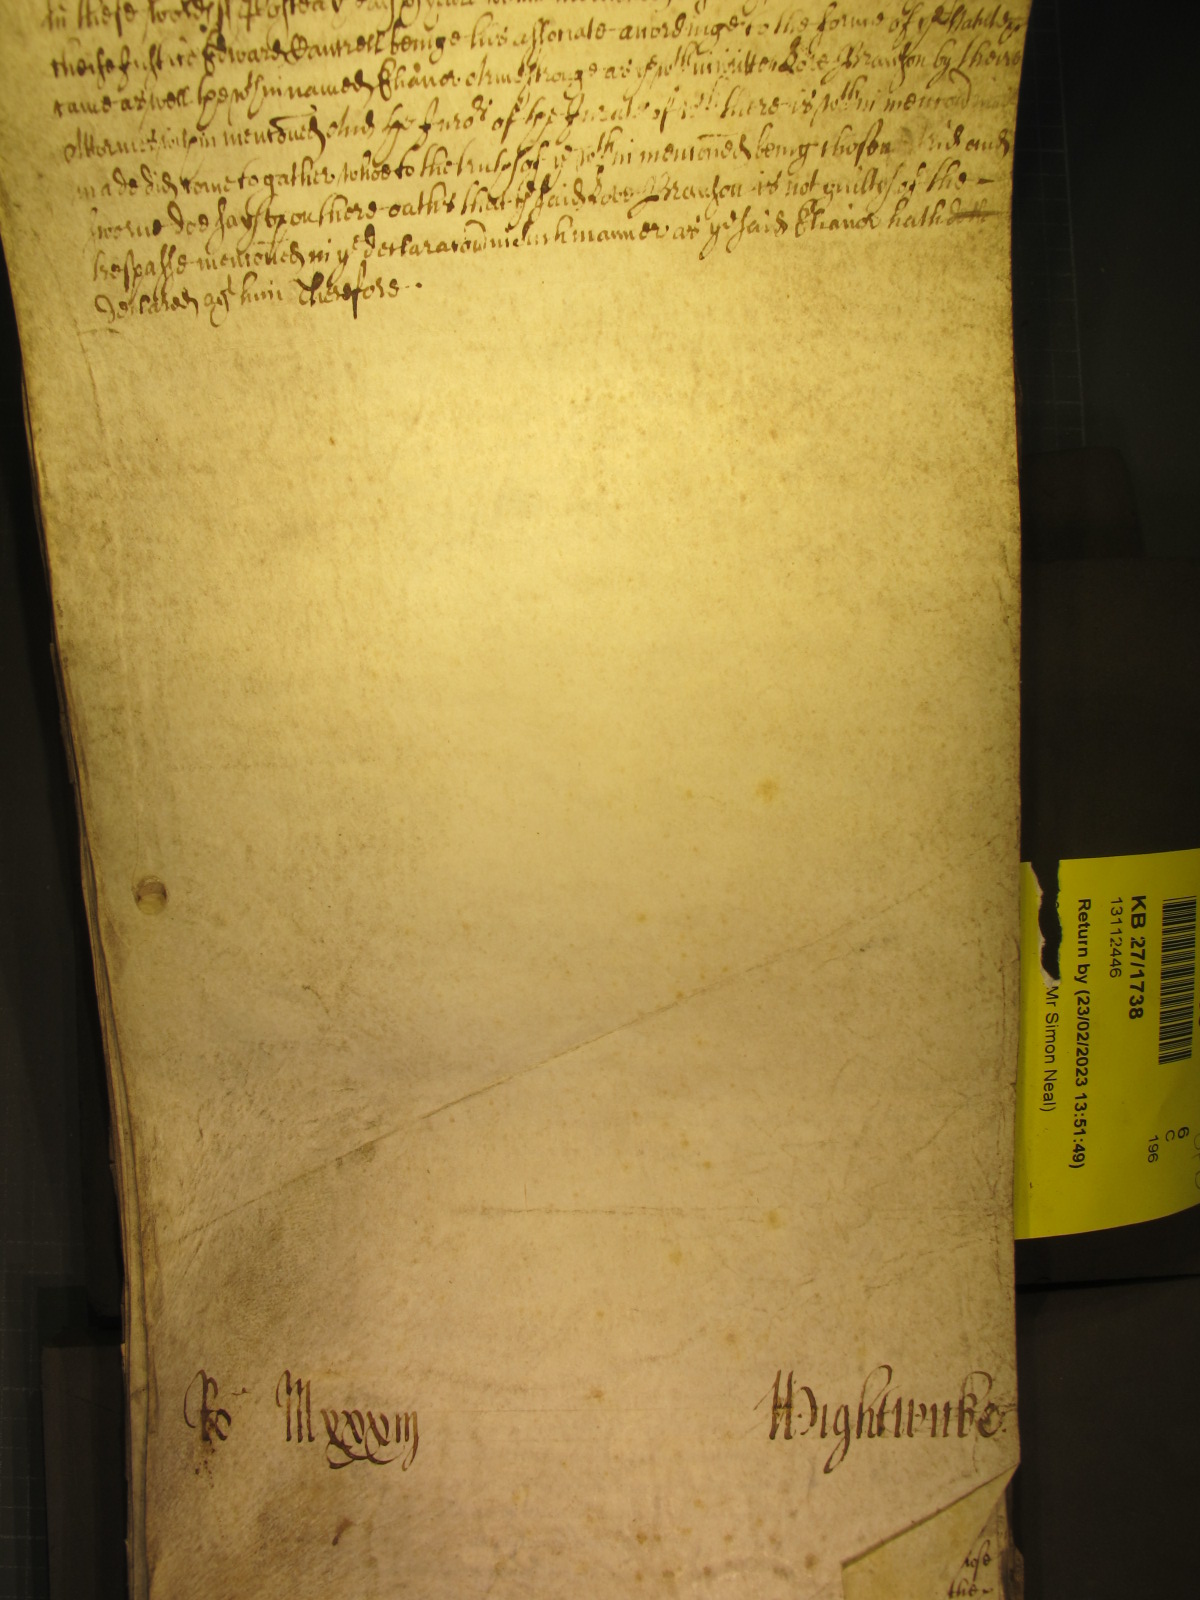 in these words
these Justice Edward Cantrell beinge his associate accordinge to the forme of ye Statute
came aswell the wthin named Elianor Armestronge as ye wthin written Rose Branson by theire
Attornies wthin menc̃oned And the Juro's of the Jurate of wch there is wthin menc̃on
made did come togather whoe to the truth of ye wthin menc̃oned being chosen tryed and
sworne doe say upon there oathes that ye said Rose Branson is not guilty of the
trespasse menc̃oned in ye declarac̃on in such manner as ye said Elianor hath
declared agt him Therefore
Ro Mxxxiij
Wightwicke
KB 27/1738
13112446
Return by (23/02/2023 13:51:49)
Mr Simon Neal)
6
C
196
the